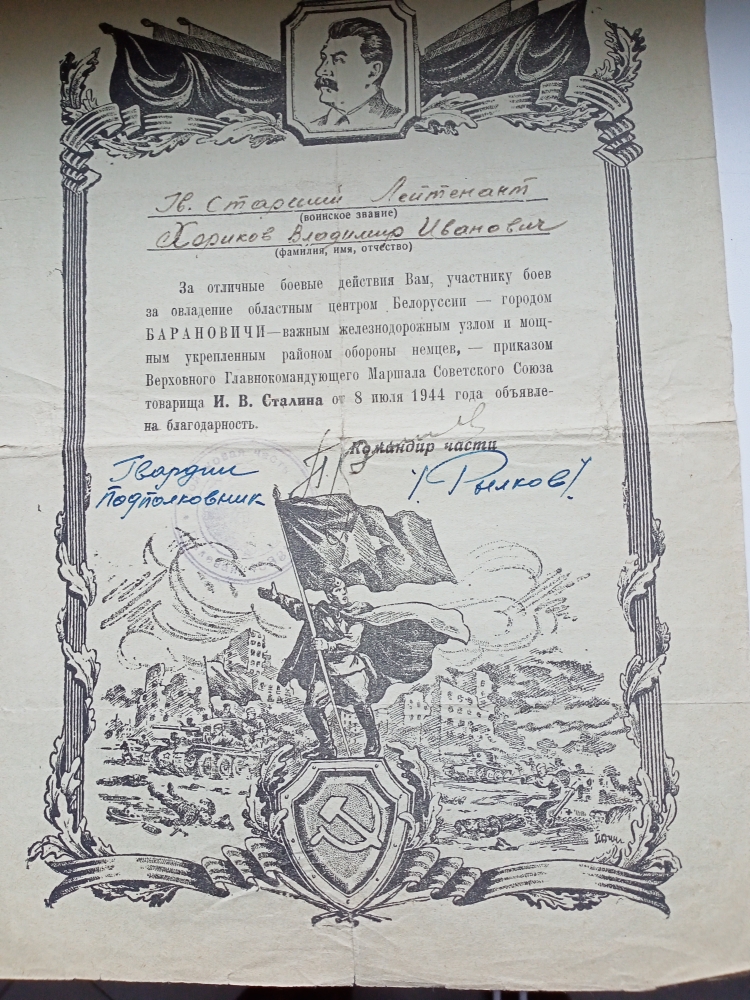 Гв. Старший Лейтенант
(воинское звание)
Хориков Владимир Иванович
(фамилия, имя, отчество)
За отличные боевые действия Вам, участнику боев
за овладение областным центром Белоруссии — городом
БАРАНОВИЧИ—важным железнодорожным узлом и мощ-
ным укрепленным районом обороны немцев, — приказом
Верховного Главнокомандующего Маршала Советского Союза
товарища И. В. Сталина от 8 июля 1944 года объявле-
на благодарность.
Командир части
Гвардии
Подполковник
/Рылков/